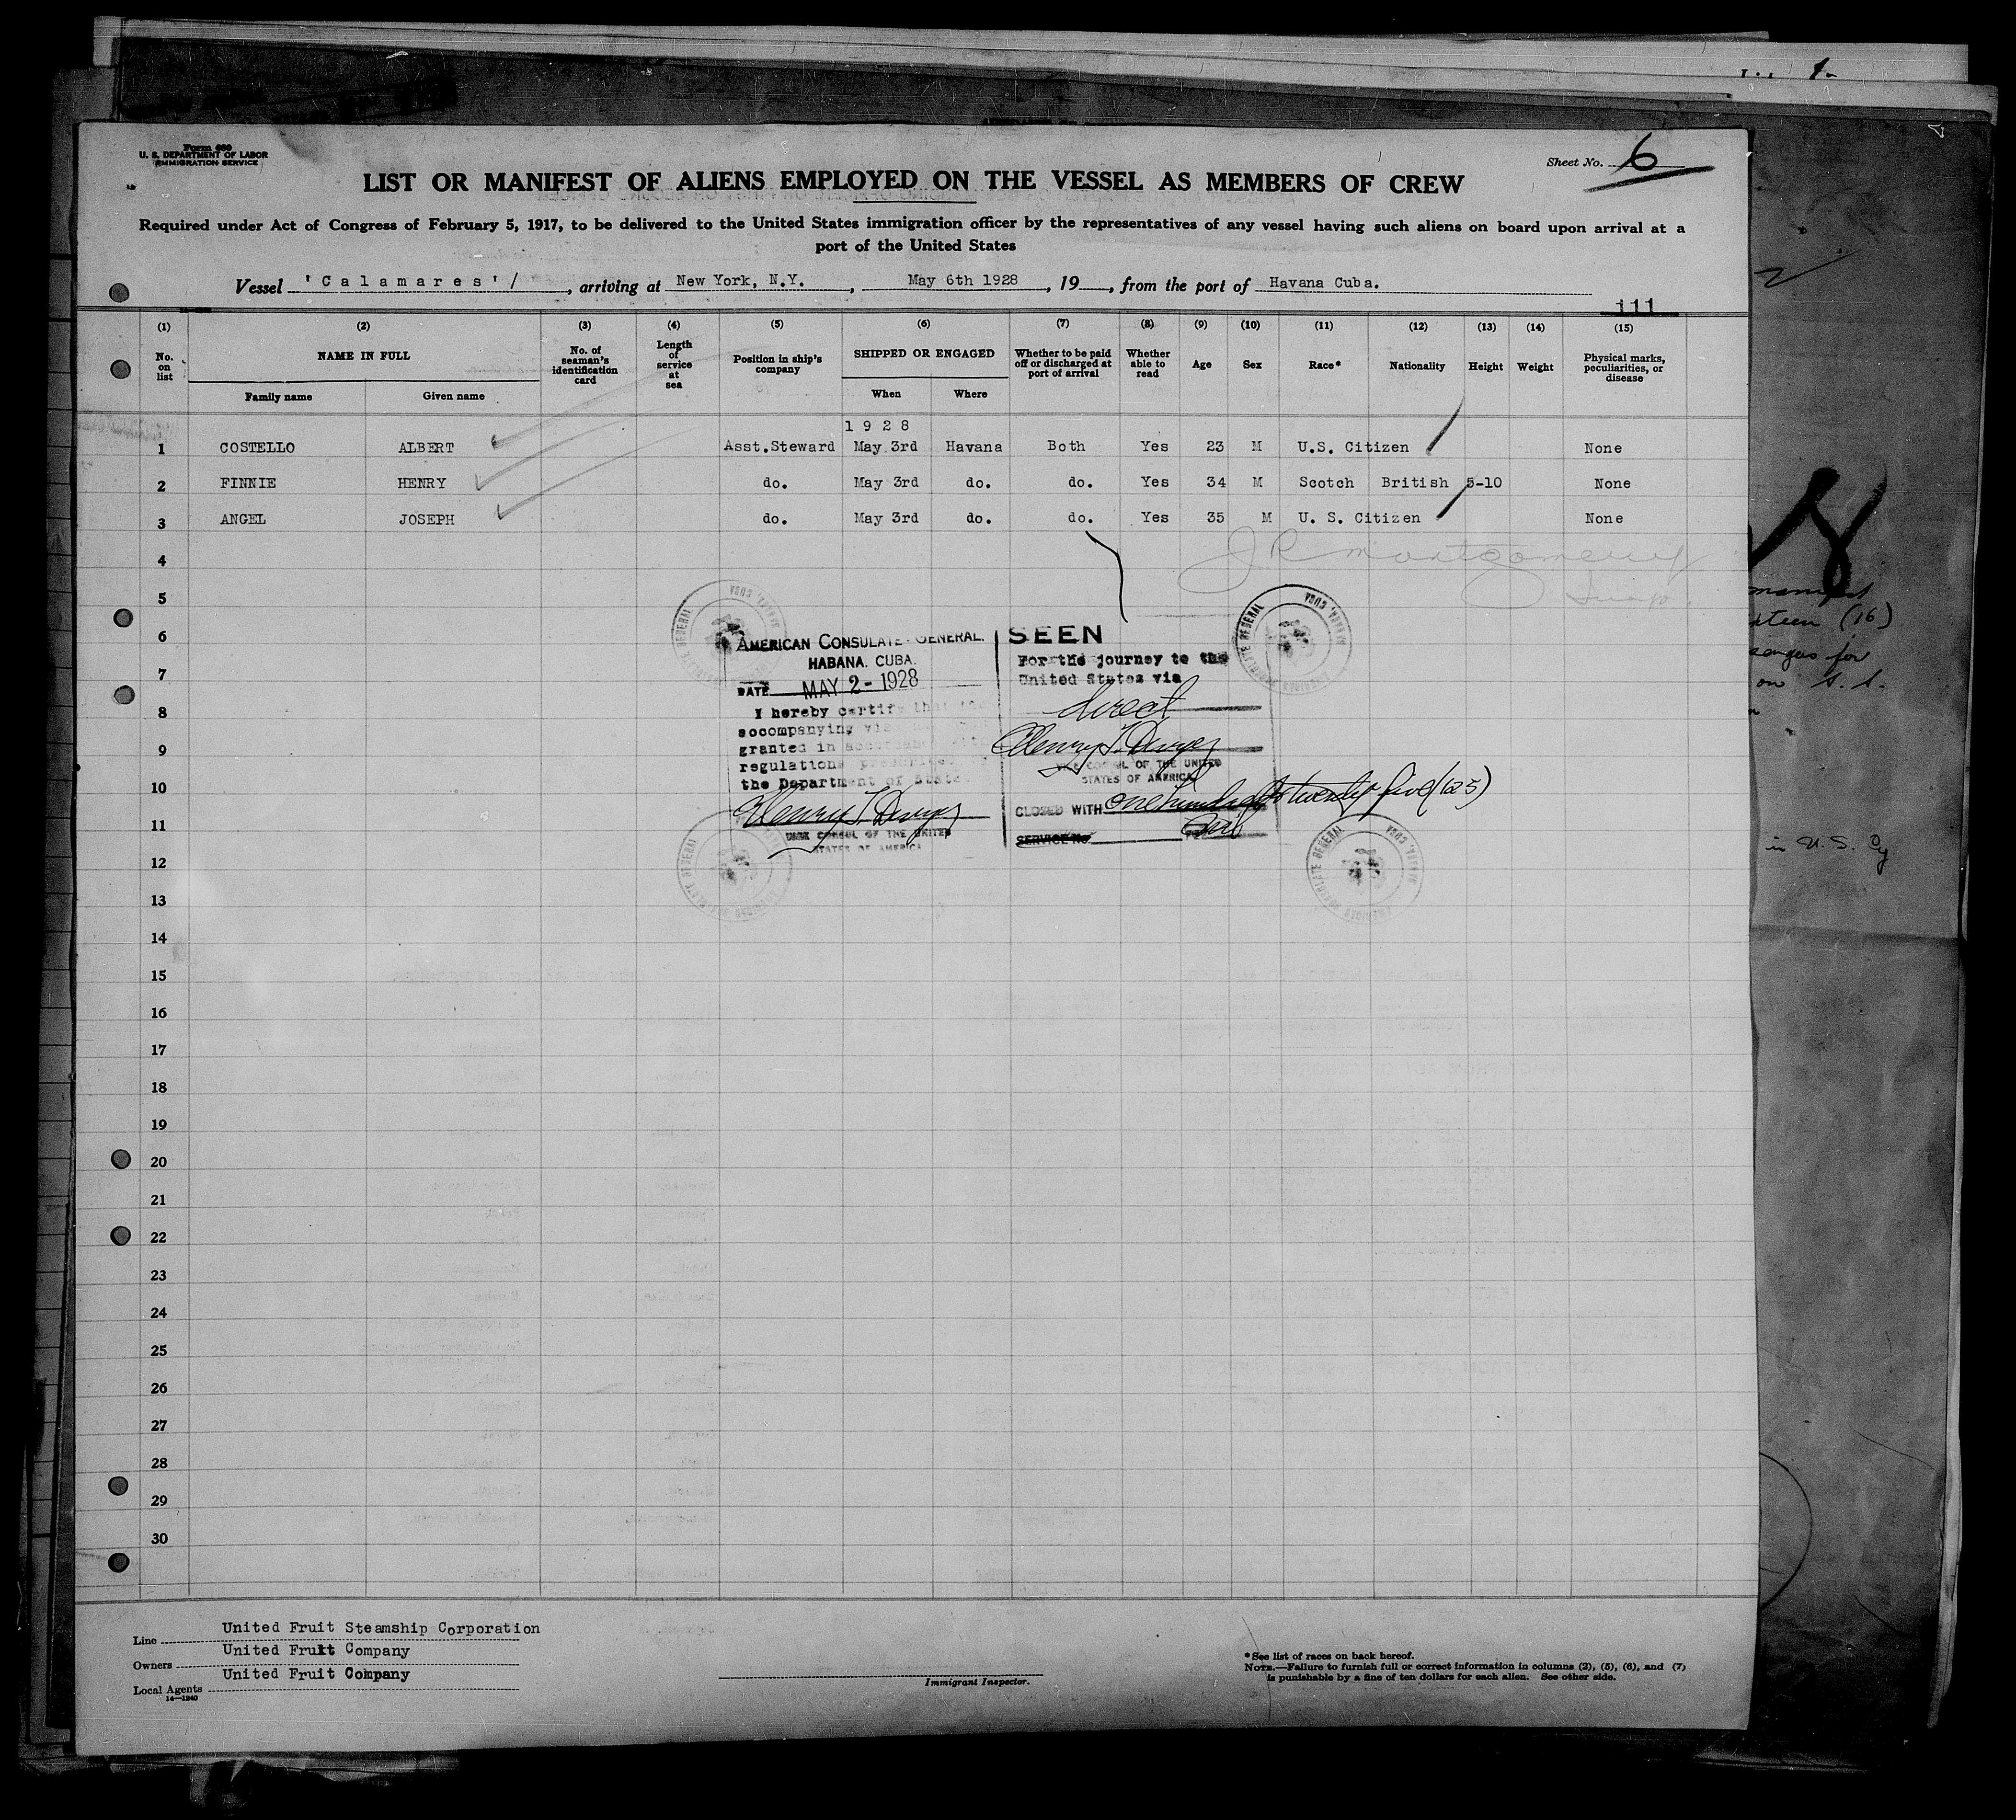 Form 680
U. S. DEPARTMENT OF LABOR
IMMIGRATION SERVICE
Sheet No. 6
LIST OR MANIFEST OF ALIENS EMPLOYED ON THE VESSEL AS MEMBERS OF CREW
Required under Act of Congress of February 5, 1917, to be delivered to the United States immigration officer by the representatives of any vessel having such aliens on board upon arrival at a
port of the United States
Vessel 'Calamares' / , arriving at New York, N.Y. , May 6th 1928 , 19 , from the port of Havana Cuba.
111
(1) (2) (3) (4) (5) (6) (7) (8) (9) (10) (11) (12) (13) (14) (15)
No. on list NAME IN FULL Family name Given name No. of seaman's identification card Length of service at sea Position in ship's company SHIPPED OR ENGAGED When Where Whether to be paid off or discharged at port of arrival Whether able to read Age Sex Race* Nationality Height Weight Physical marks, peculiarities, or disease
1928
1 COSTELLO ALBERT Asst.Steward May 3rd Havana Both Yes 23 M U.S. Citizen None
2 FINNIE HENRY do. May 3rd do. do. Yes 34 M Scotch British 5-10 None
3 ANGEL JOSEPH do. May 3rd do. do. Yes 35 M U. S. Citizen None
J R Montgomery
4
5
6
7
8
9
10
11
12
13
14
15
16
17
18
19
20
21
22
23
24
25
26
27
28
29
30
AMERICAN CONSULATE GENERAL.
HABANA, CUBA.
DATE MAY 2 - 1928
I hereby certify that the
accompanying
granted in accordance
regulations prescribed
the Department of State.
Henry T. Dwyer
VICE CONSUL OF THE UNITED
STATES OF AMERICA
SEEN
For the journey to the
United States via
direct
Henry T. Dwyer
VICE CONSUL OF THE UNITED
STATES OF AMERICA
CLOSED WITH one hundred twenty five (125)
SERVICE No.
Line United Fruit Steamship Corporation
Owners United Fruit Company
Local Agents United Fruit Company
14—1240
Immigrant Inspector.
* See list of races on back hereof.
NOTE.—Failure to furnish full or correct information in columns (2), (5), (6), and (7)
is punishable by a fine of ten dollars for each alien. See other side.
manifest
(16)
for
on S.S.
in U.S.